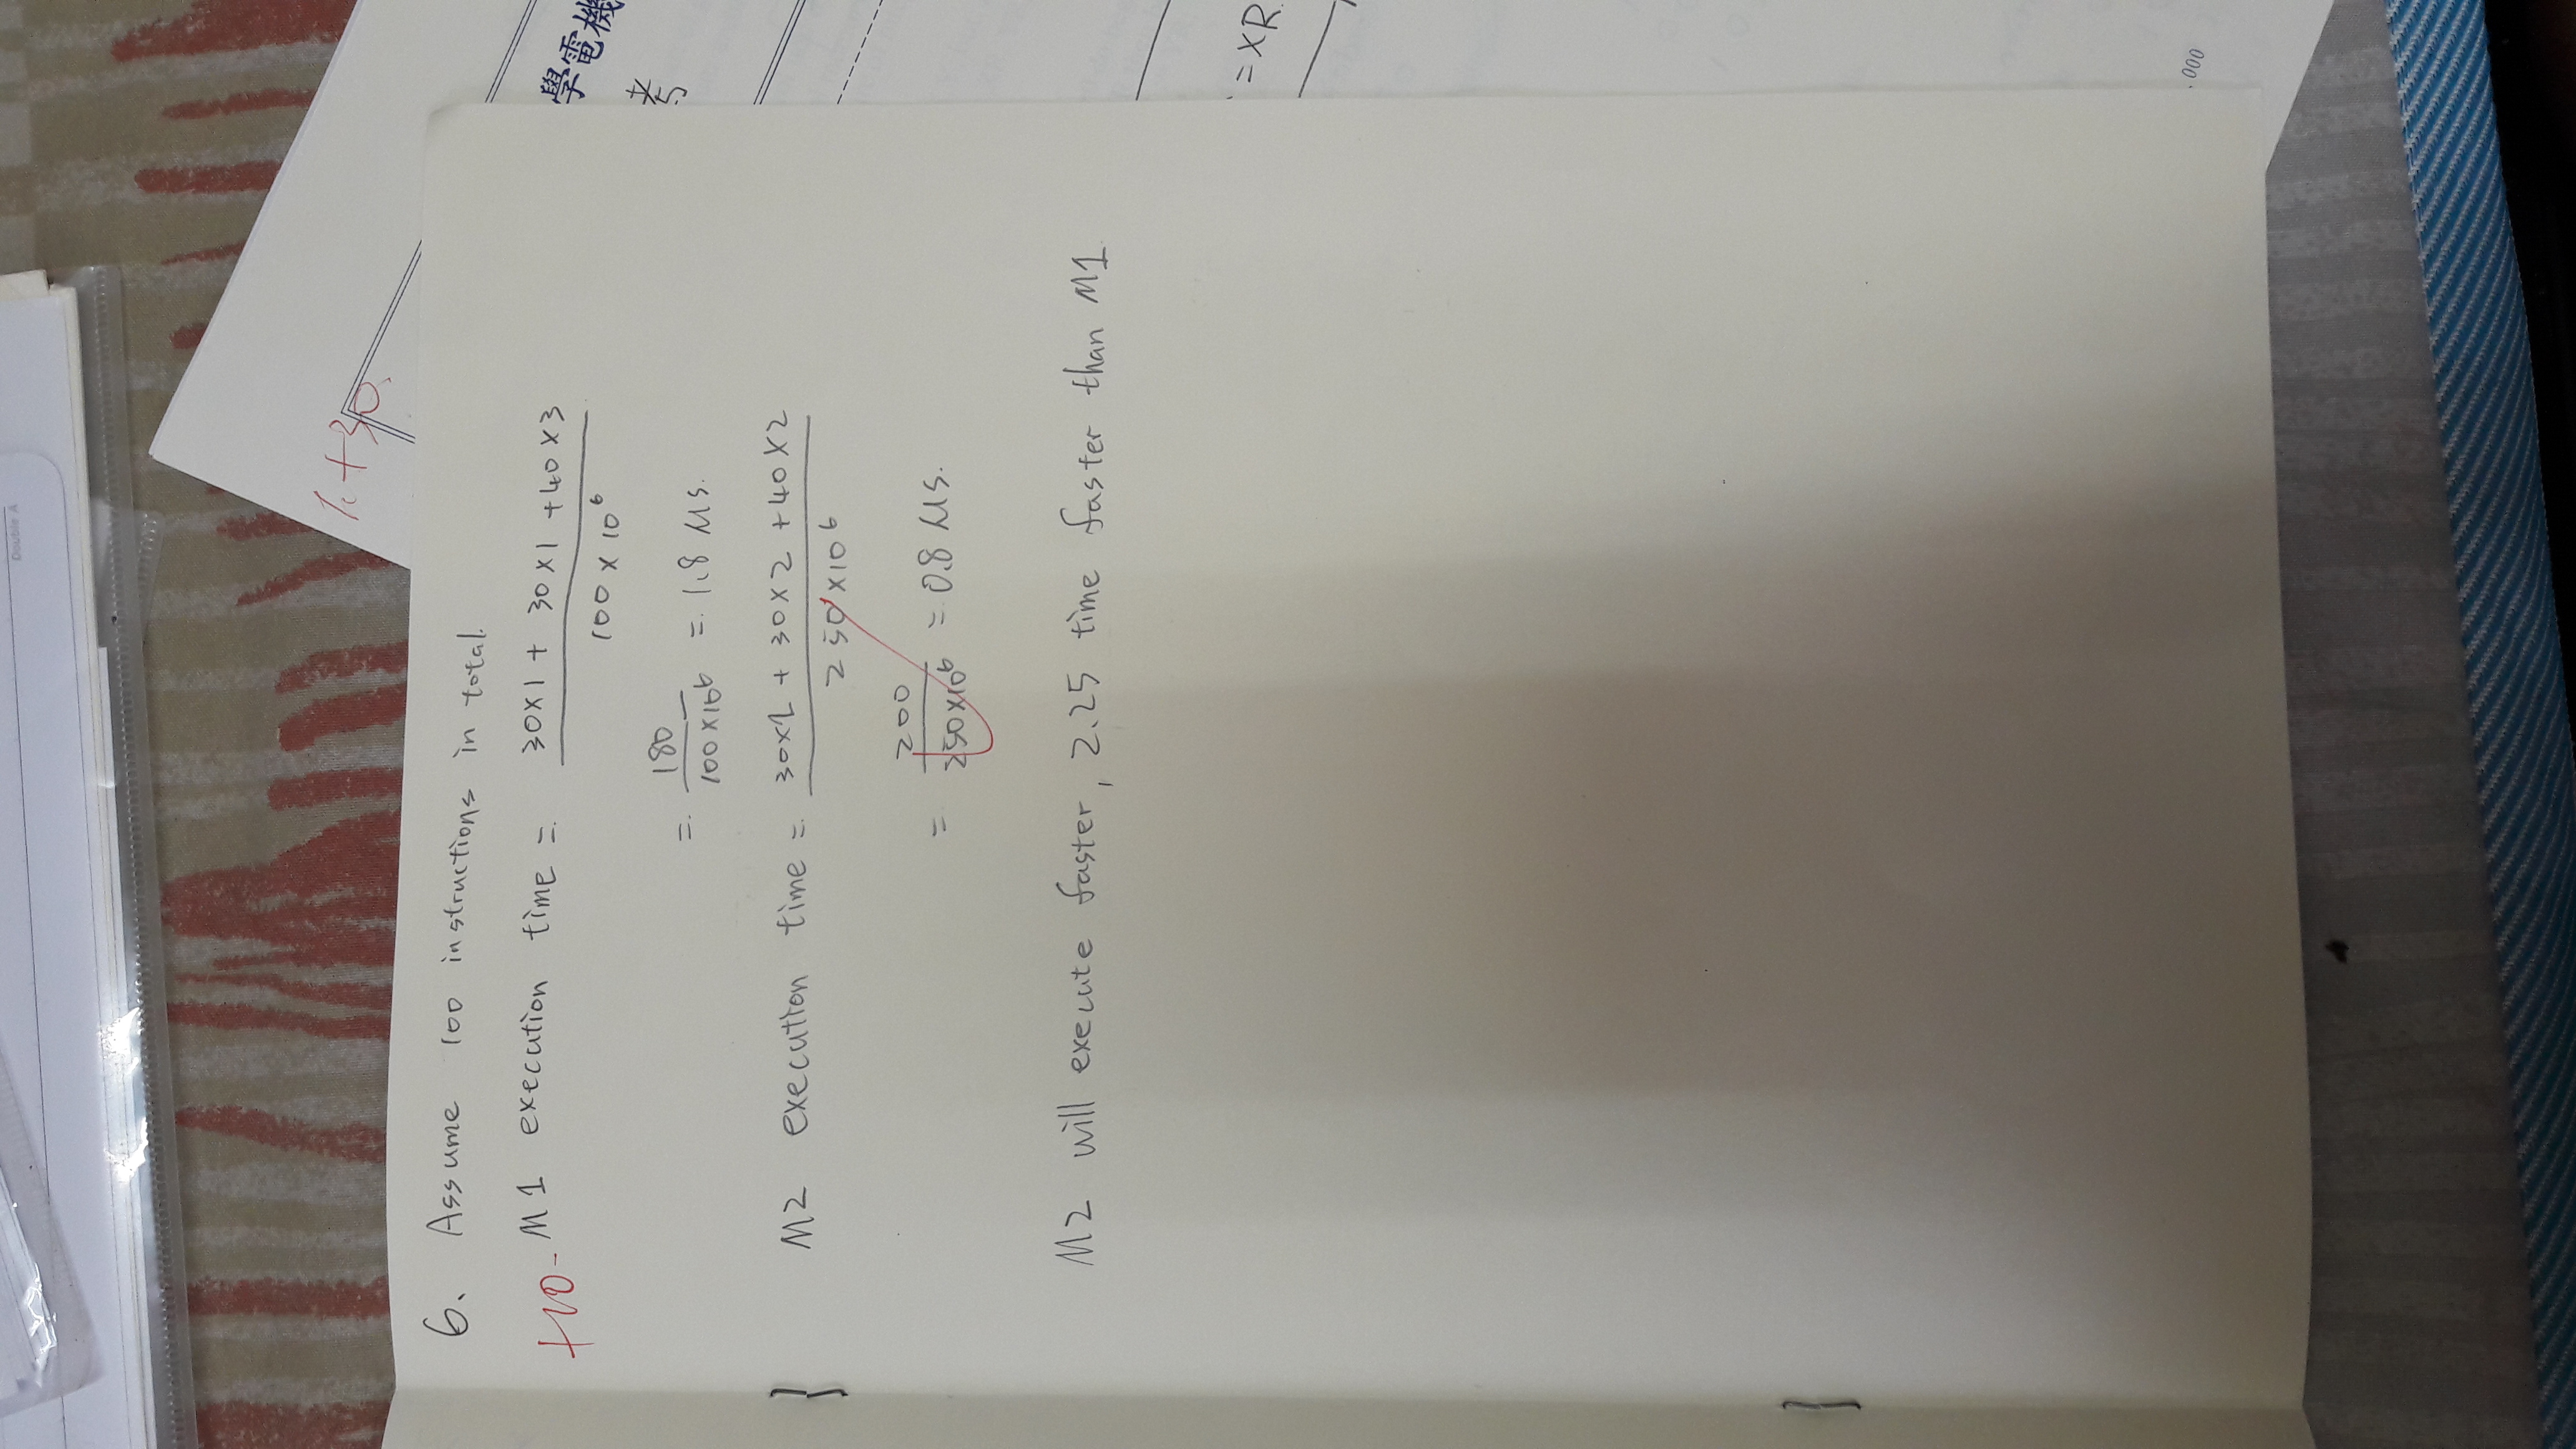 Double A
1. +30.
6. Assume 100 instructions in total.
+10-
M1 execution time = 30×1 + 30×1 +40×3
100 × 10^6
= 180
100×10^6
= 1.8 μs.
M2 execution time = 30×2 + 30×2 +40×2
250×10^6
= 200
250×10^6
= 0.8 μs.
M2 will execute faster, 2.25 time faster than M1.
學電機
考
=XR.
.000